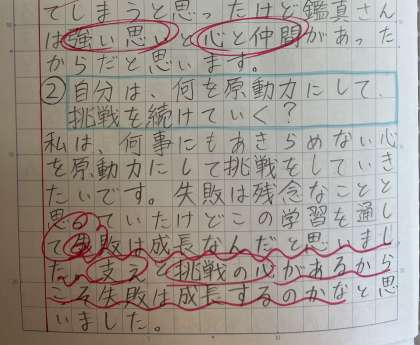 てしまうと思ったけど鑑真さん
は強い思いと心と仲間があった
からだと思います。
② 自分は、何を原動力にして、
挑戦を続けていく？
私は、何事にもあきらめない心
を原動力にして挑戦をしていき
たいです。失敗は残念なことと
思っていたけどこの学習を通し
て失敗は成長なんだと思いまし
た。支えと挑戦の心があるから
こそ失敗は成長するのかなと思
いました。